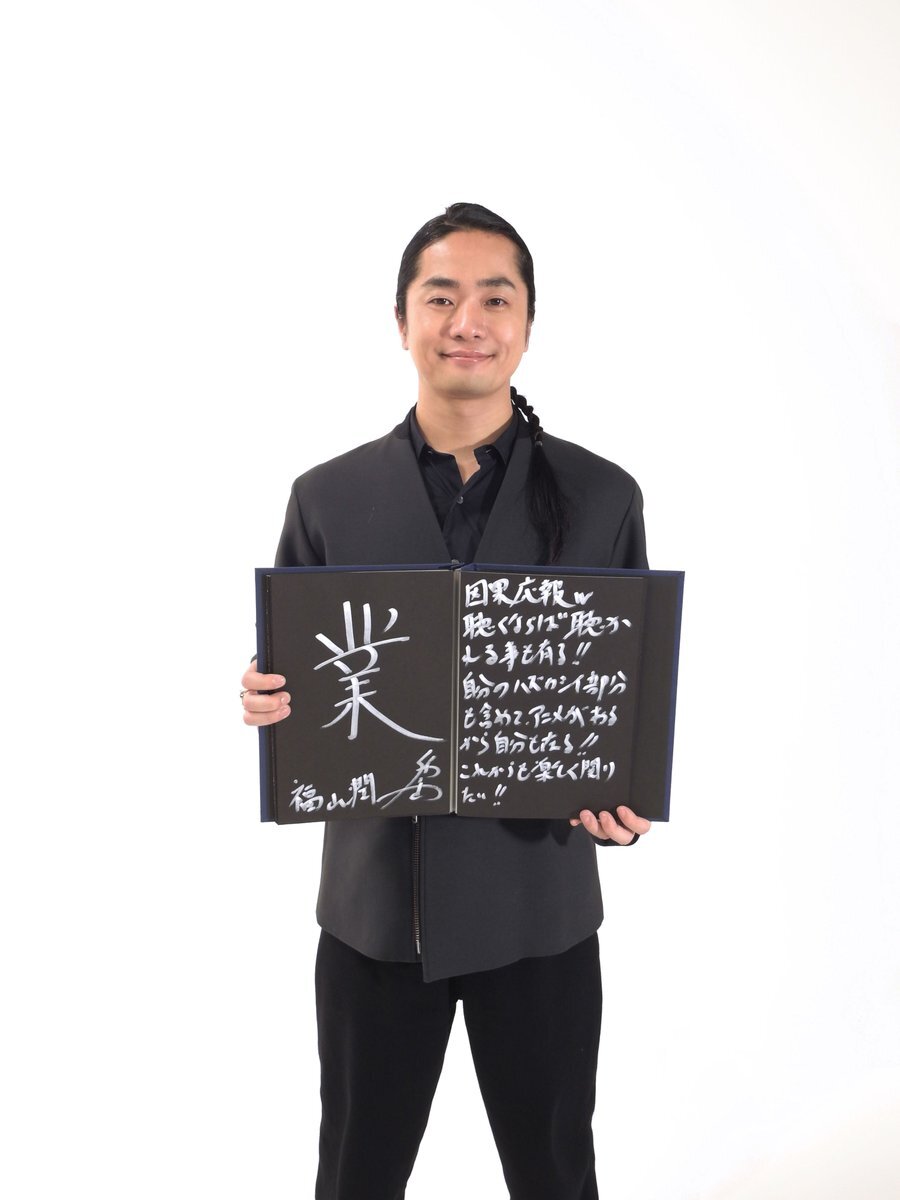 業
福山潤
因果応報w
聴くならば聴か
れる事も有る!!
自分のハズカシイ部分
も含めて、アニメがわる
から自分も在る!!
これからも楽しく関り
たい!!